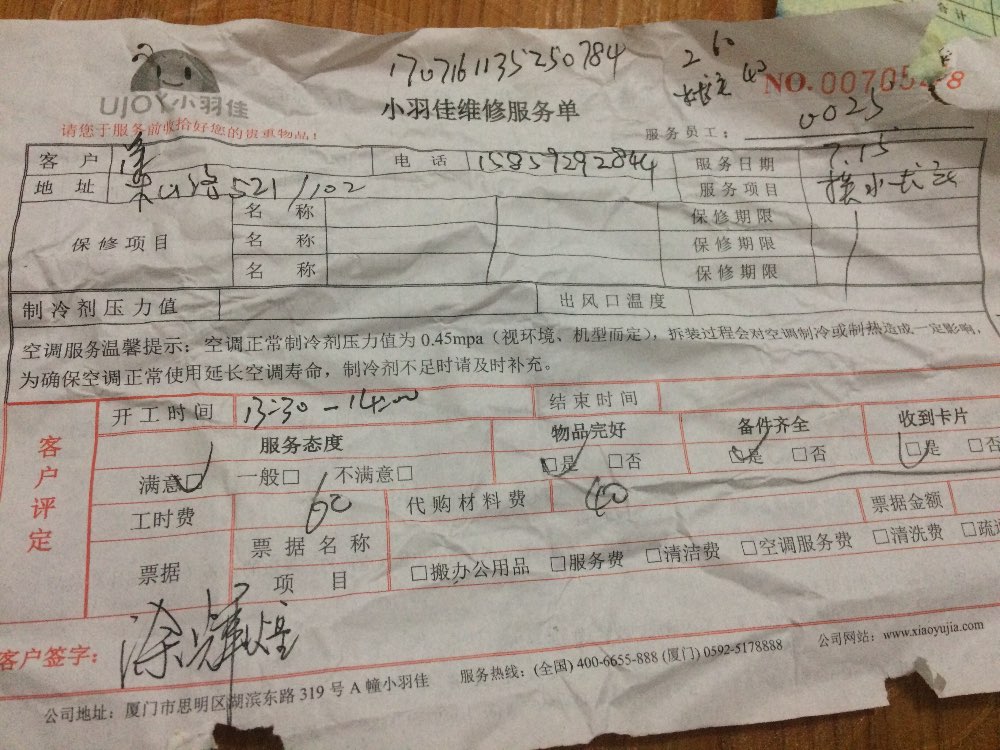 1707161135250784
260
NO. 0070548
UJOY小羽佳
小羽佳维修服务单
请您于服务前收拾好您的贵重物品！
服务员工： 0025
客户 涂 电话 15859292844 服务日期 7.15
地址 521/102 服务项目 换水龙头
保修项目 名称 保修期限
名称 保修期限
名称 保修期限
制冷剂压力值 出风口温度
空调服务温馨提示：空调正常制冷剂压力值为 0.45mpa（视环境、机型而定），拆装过程会对空调制冷或制热造成一定影响，
为确保空调正常使用延长空调寿命，制冷剂不足时请及时补充。
客户评定
开工时间 13:30-14:00 结束时间
服务态度 物品完好 备件齐全 收到卡片
满意□ 一般□ 不满意□ □是 □否 □是 □否 □是 □否
工时费 60 代购材料费 40 票据金额
票据 票据名称
项目 □搬办公用品 □服务费 □清洁费 □空调服务费 □清洗费 □疏通
客户签字： 涂辉煌
公司地址：厦门市思明区湖滨东路 319 号 A 幢小羽佳 服务热线：(全国) 400-6655-888 (厦门) 0592-5178888 公司网站：www.xiaoyujia.com